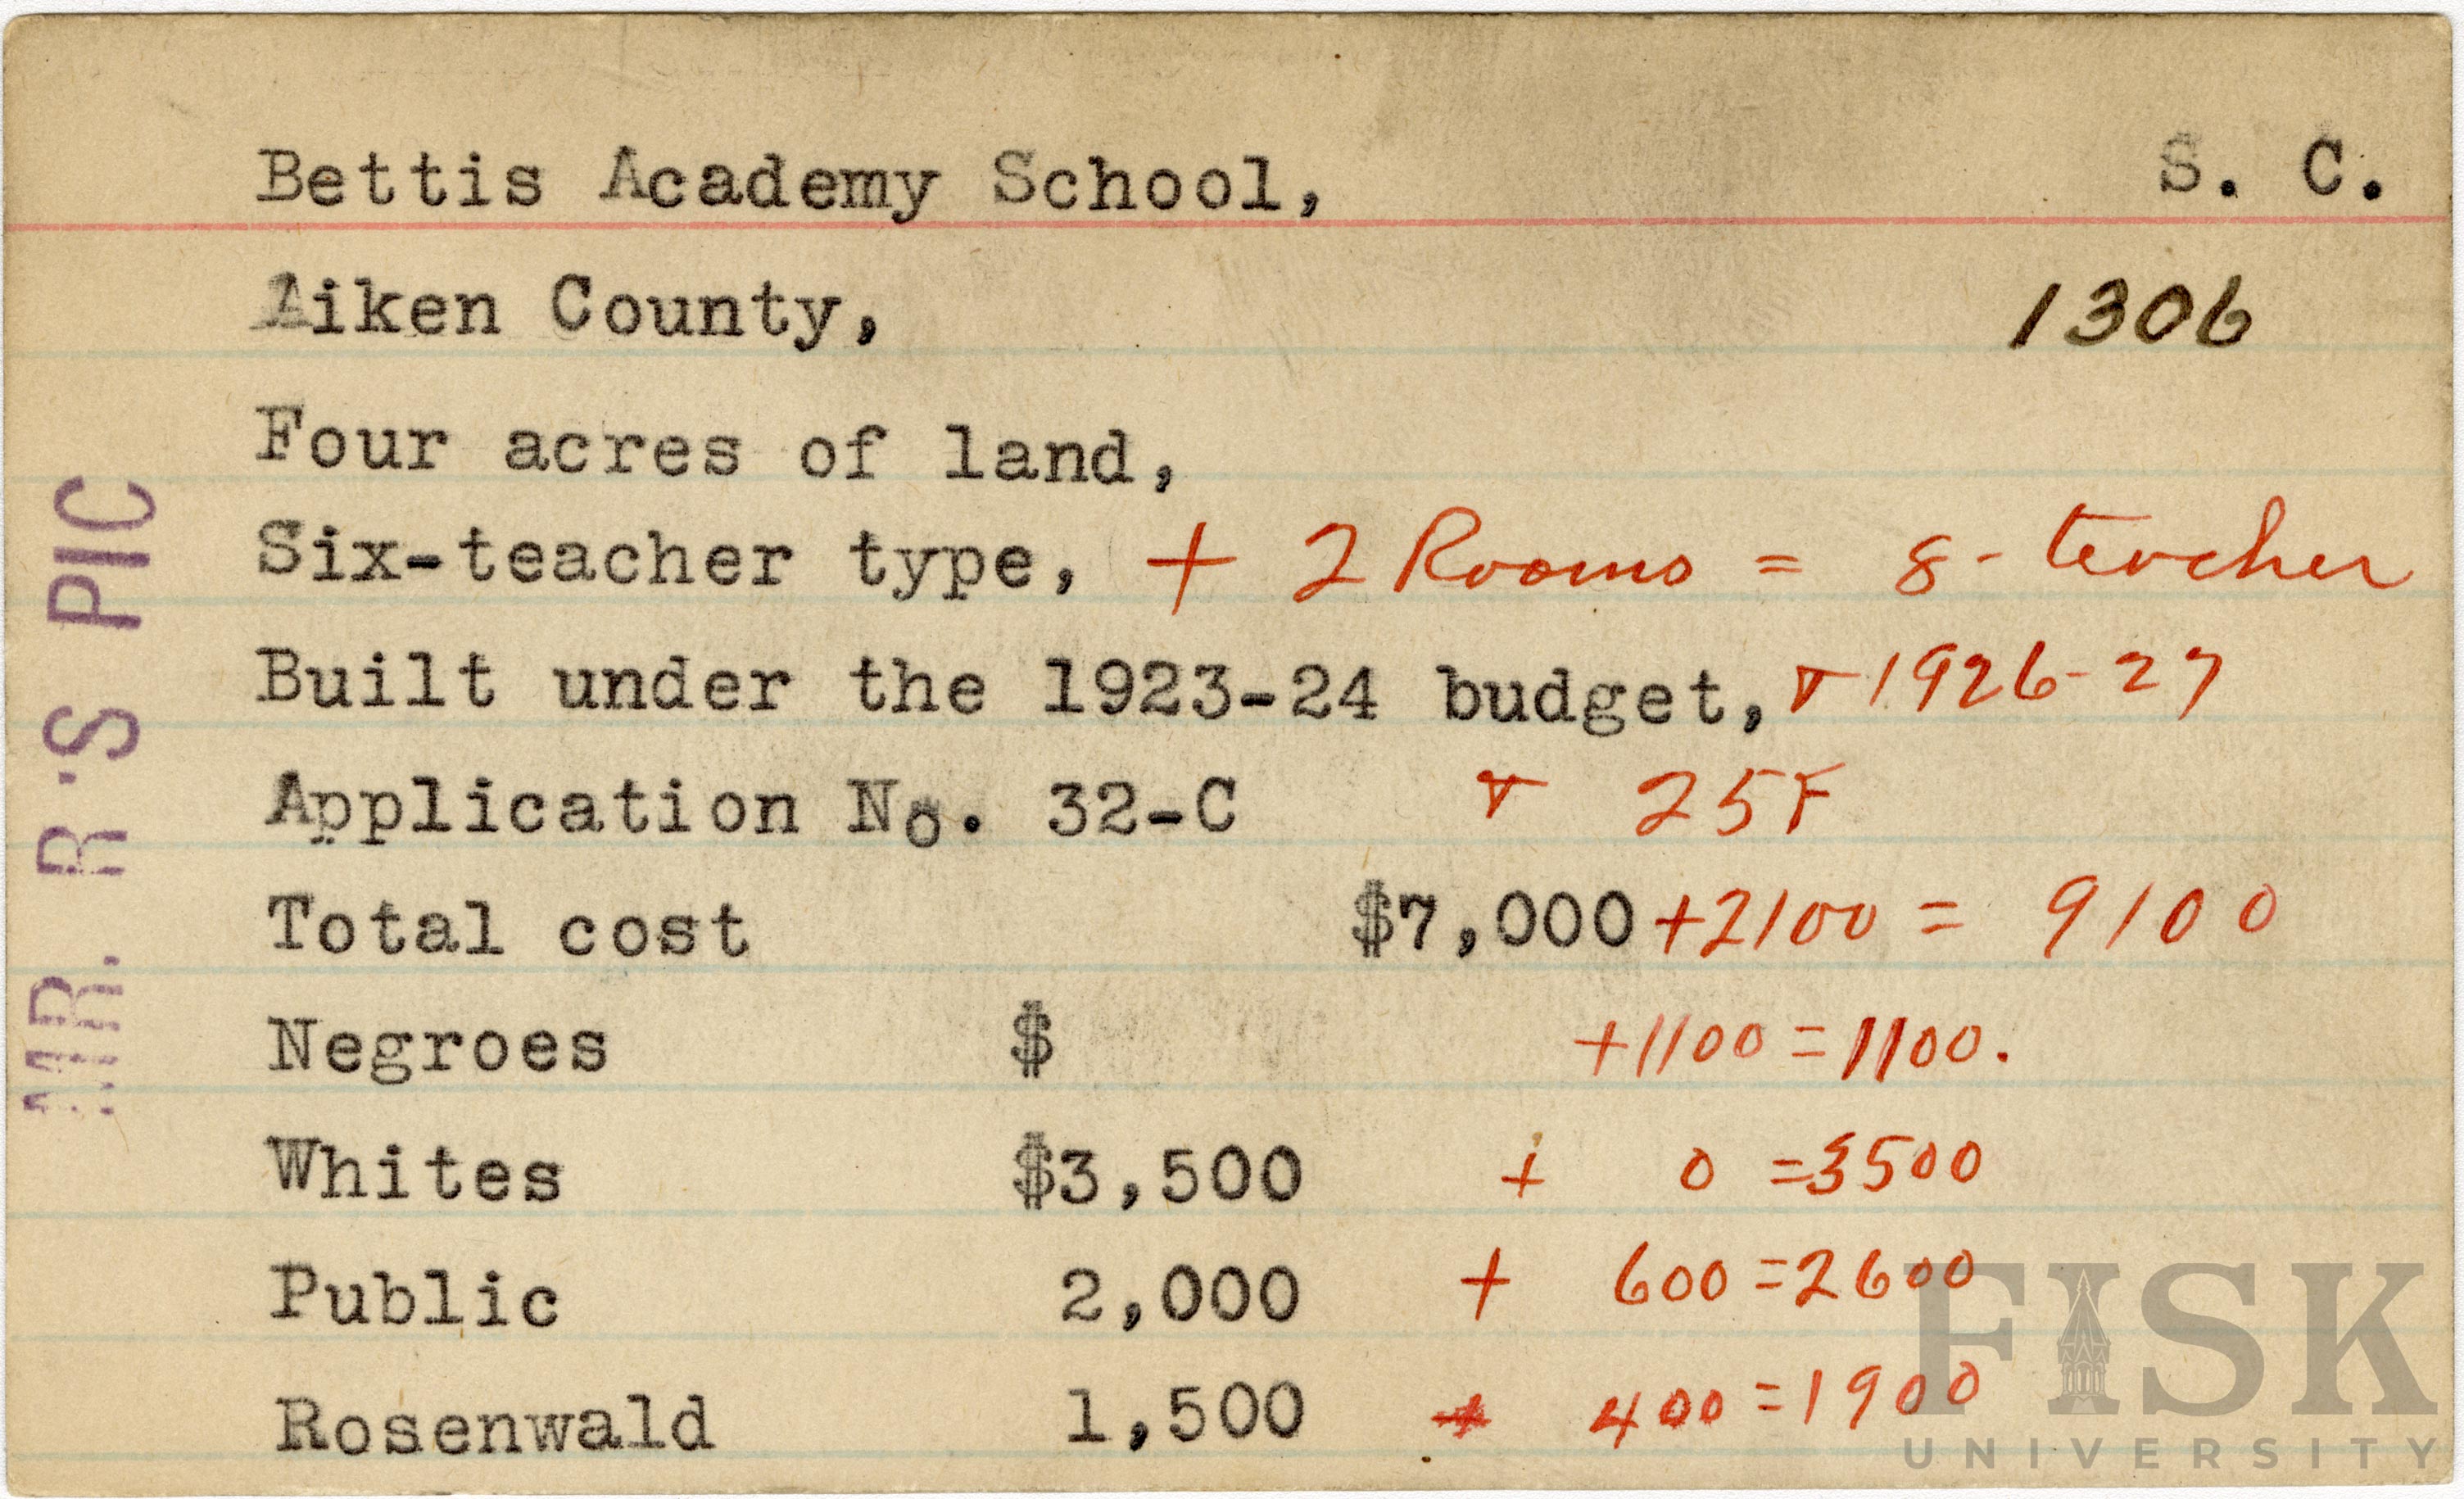 Bettis Academy School, S. C.
Aiken County, 1306
Four acres of land,
Six-teacher type, + 2 Rooms = 8-teacher
Built under the 1923-24 budget, + 1926-27
Application No. 32-C + 25F
Total cost $7,000 +2100 = 9100
Negroes $ +1100 = 1100.
Whites $3,500 + 0 =3500
Public 2,000 + 600 =2600
Rosenwald 1,500 + 400 =1900
MR. R'S PIC
FISK
UNIVERSITY